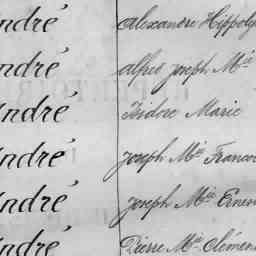 André Alexandre Hippoly
André Alfred Joseph Mie
André Isidore Marie
André Joseph Mie Franco
André Joseph Mie Ernes
André Pierre Mie Clémen